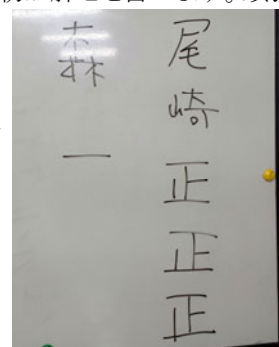 尾崎正正正
森一